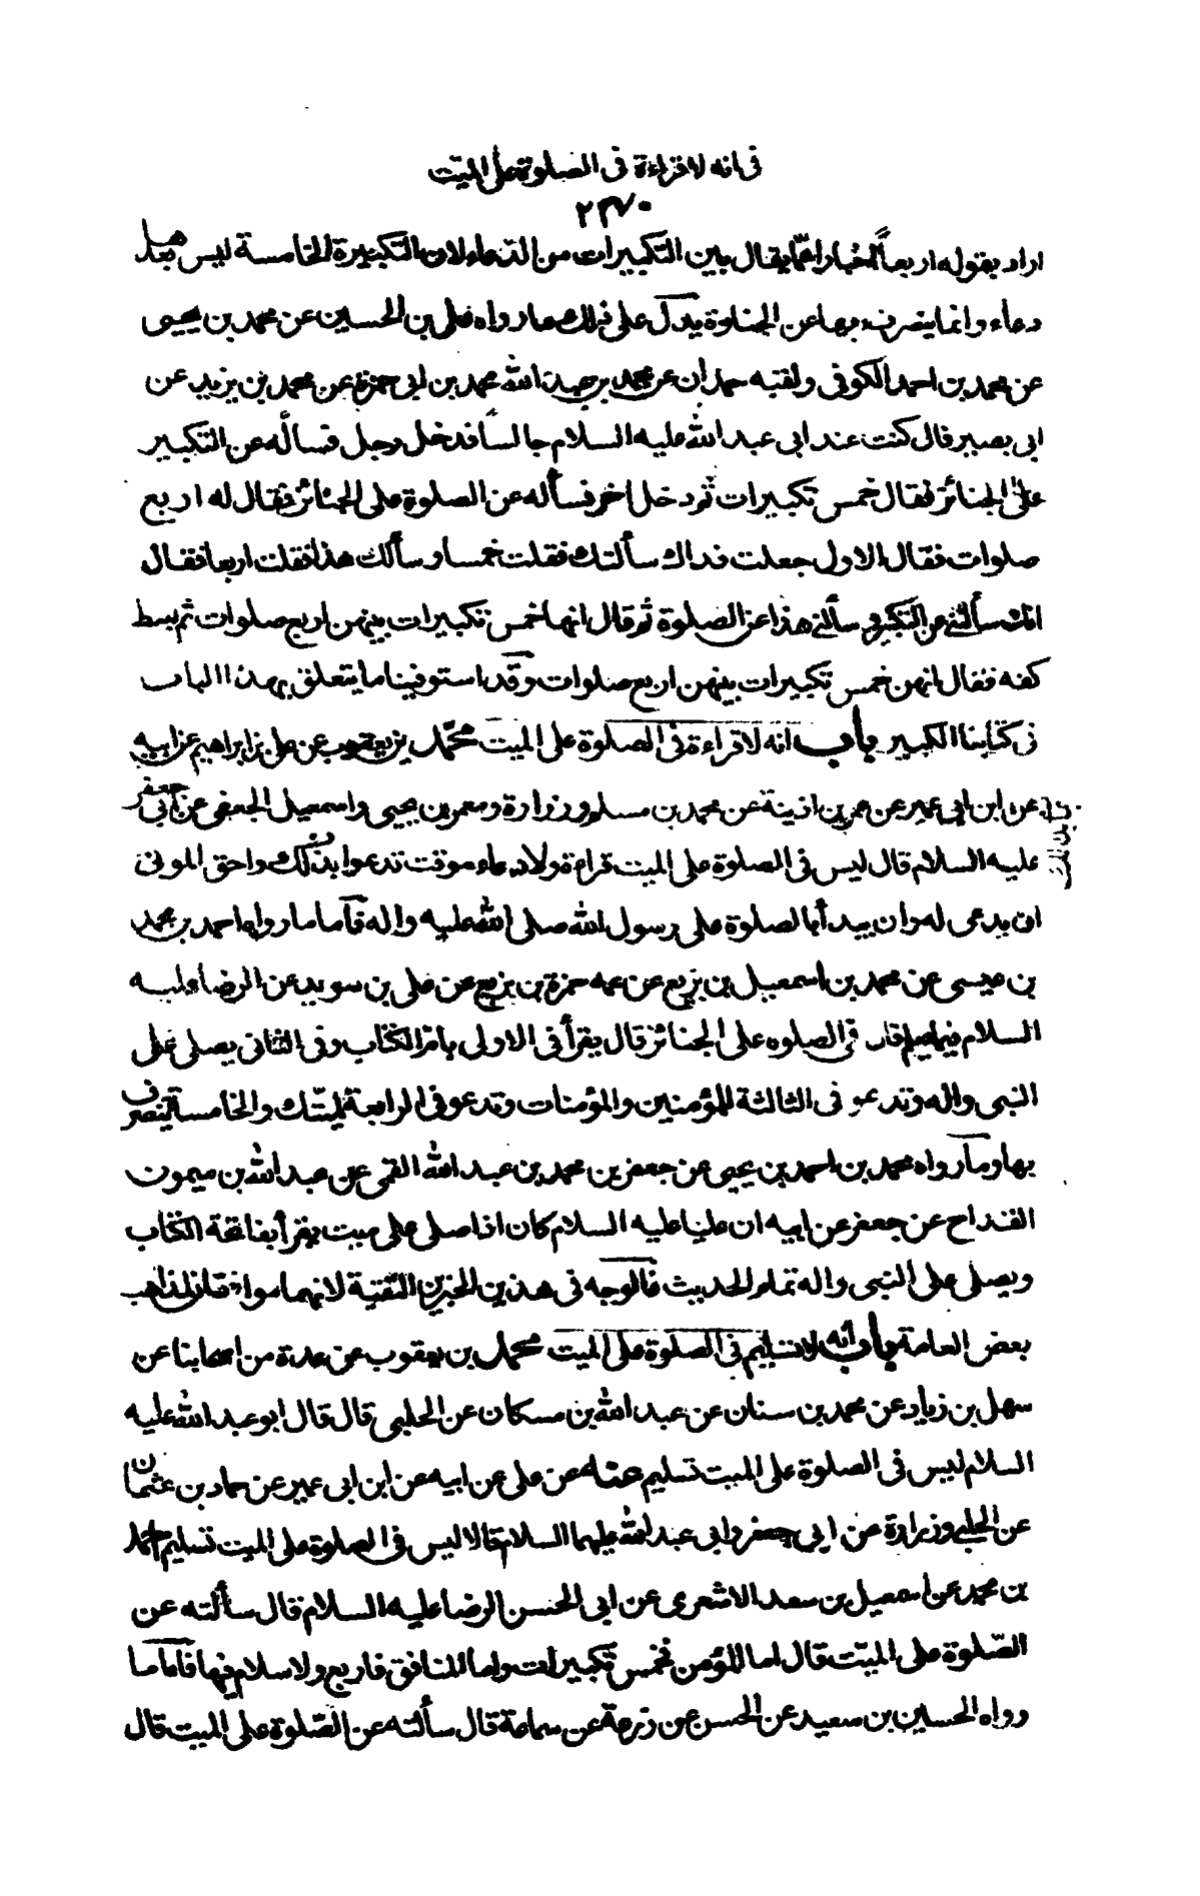 فى انه لا قراءة فى الصلوة على الميّت
٢٣٧٠
اراد بقوله اربعاً اخبارا عمّا يقال بين التكبيرات من الدّعاء لان التكبيرة الخامسة ليس بعدها
دعاء وانما ينصرف بها عن الجنازة يدل على ذلك ما رواه على بن الحسين عن محمد بن يحيى
عن محمد بن احمد الكوفى ولقبه حمدان عن محمد بن عبد الله محمد بن ابى حمزة عن محمد بن يزيد عن
ابى بصير قال كنت عند ابى عبد الله عليه السلام جالسًا فدخل رجل فسأله عن التكبير
على الجنائز فقال خمس تكبيرات ثم دخل اخر فسأله عن الصلوة على الجنائز فقال له اربع
صلوات فقال الاول جعلت فداك سألتك فقلت خمسا وسألك هذا فقلت اربعا فقال
انك سألتنى عن التكبير وسألنى هذا عن الصلوة ثم قال انها خمس تكبيرات بينهن اربع صلوات ثم بسط
كفه فقال انهن خمس تكبيرات بينهن اربع صلوات وقد استوفينا ما يتعلق بهذا الباب
فى كتابنا الكبير باب انه لا قراءة فى الصلوة على الميت محمّد بن يعقوب عن على بن ابراهيم عن ابيه
عن ابن ابى عمير عن عمر بن اذينة عن محمد بن مسلم وزرارة ومعمر بن يحيى واسمعيل الجعفى عن ابى جعفر
عليه السلام قال ليس فى الصلوة على الميت قراءة ولا دعاء موقت تدعوا بذلك واحق الموتى
ان يدعى له وان يبدأ بالصلوة على رسول الله صلى الله عليه واله فاما ما رواه احمد بن محمد
بن عيسى عن محمد بن اسمعيل بن بزيع عن عمه حمزة بن بزيع عن على بن سويد عن الرضا عليه
السلام فيما يعلم قال فى الصلوه على الجنائز قال يقرأ فى الاولى بام الكتاب وفى الثانى يصلى على
النبى واله وتدعو فى الثالثة للمؤمنين والمؤمنات وتدعو فى الرابعة لميّتك والخامسة ينصرف
بها وما رواه محمد بن احمد بن يحيى عن جعفر بن محمد بن عبد الله القمى عن عبد الله بن ميمون
القداح عن جعفر عن ابيه ان عليا عليه السلام كان اذا صلى على ميت يقرأ بفاتحة الكتاب
ويصلى على النبى واله تمام الحديث فالوجه فى هذين الخبرين التّقية لانهما موافقان لمذاهب
بعض العامة باب انه لا تسليم فى الصلوة على الميت محمد بن يعقوب عن عدة من اصحابنا عن
سهل بن زياد عن محمد بن سنان عن عبد الله بن مسكان عن الحلبى قال قال ابو عبد الله عليه
السلام ليس فى الصلوة على الميت تسليم عنه عن على عن ابيه عن ابن ابى عمير عن حماد بن عثمان
عن الحلبى وزرارة عن ابى جعفر وابى عبد الله عليهما السلام قالا ليس فى الصلوة على الميت تسليم احمد
بن محمد عن اسمعيل بن سعد الاشعرى عن ابى الحسن الرضا عليه السلام قال سألته عن
الصّلوة على الميّت قال اما المؤمن فخمس تكبيرات واما المنافق فاربع ولا سلام فيها فاما ما
رواه الحسين بن سعيد عن الحسن عن زرعة عن سماعة قال سألته عن الصّلوة على الميت قال